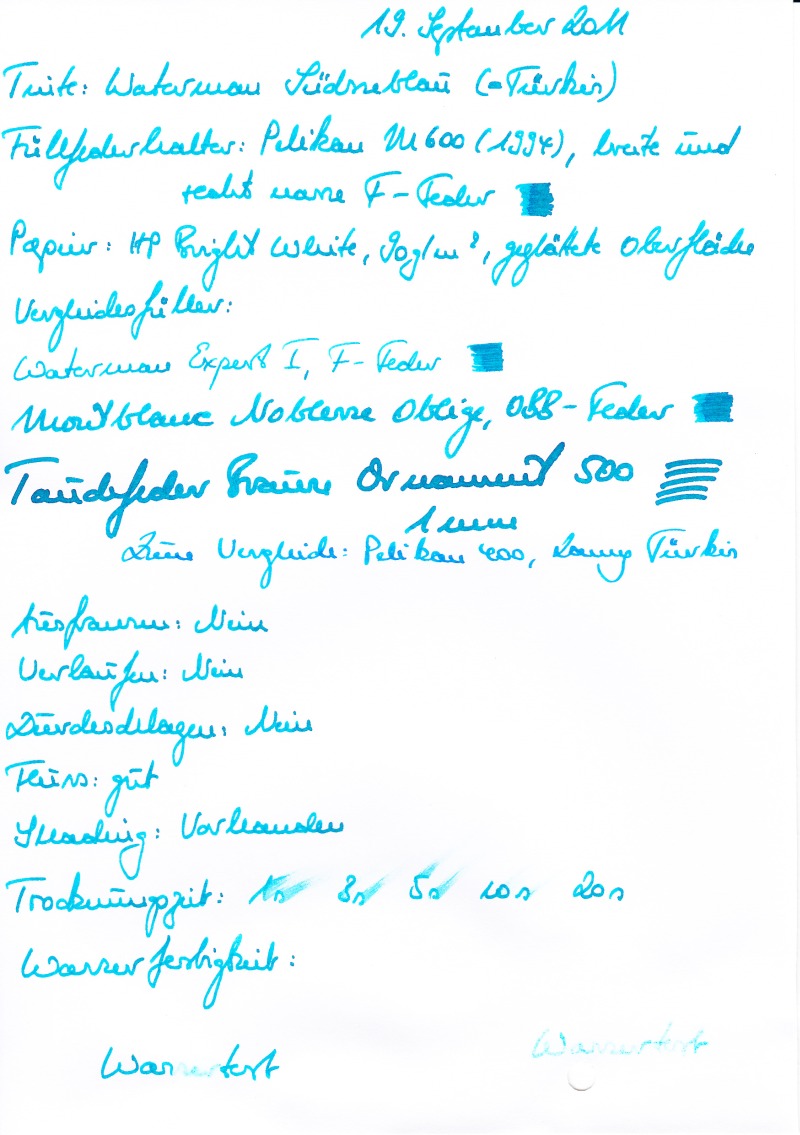 19. September 2011
Tinte: Waterman Südseeblau (=Türkis)
Füllfederhalter: Pelikan M600 (1994), breite und
recht nasse F-Feder
Papier: HP Bright White, 90g/m², geglättete Oberfläche
Vergleichsfüller:
Waterman Expert I, F-Feder
Montblanc Noblesse Oblige, OBB-Feder
Tauchfeder Brause Ornament 500
1 mm
Zum Vergleich: Pelikan 400, Lamy Türkis
Ausfransen: Nein
Verlaufen: Nein
Durchschlagen: Nein
Fluss: gut
Shading: Vorhanden
Trocknungszeit: 1s 3s 5s 10s 20s
Wasserfestigkeit:
Wassertest Wassertest